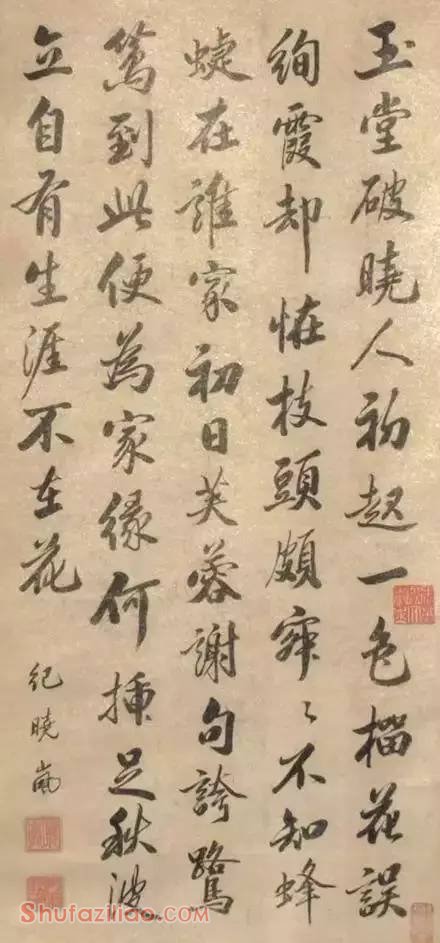 玉堂破曉人初起一色榴花誤
絢霞却怪枝頭頗寂〻不知蜂
蜨在誰家初日芙蓉謝句誇鷺
篤到此便為家緣何插足秋波
立自有生涯不在花
紀曉嵐
Shufaziliao.com